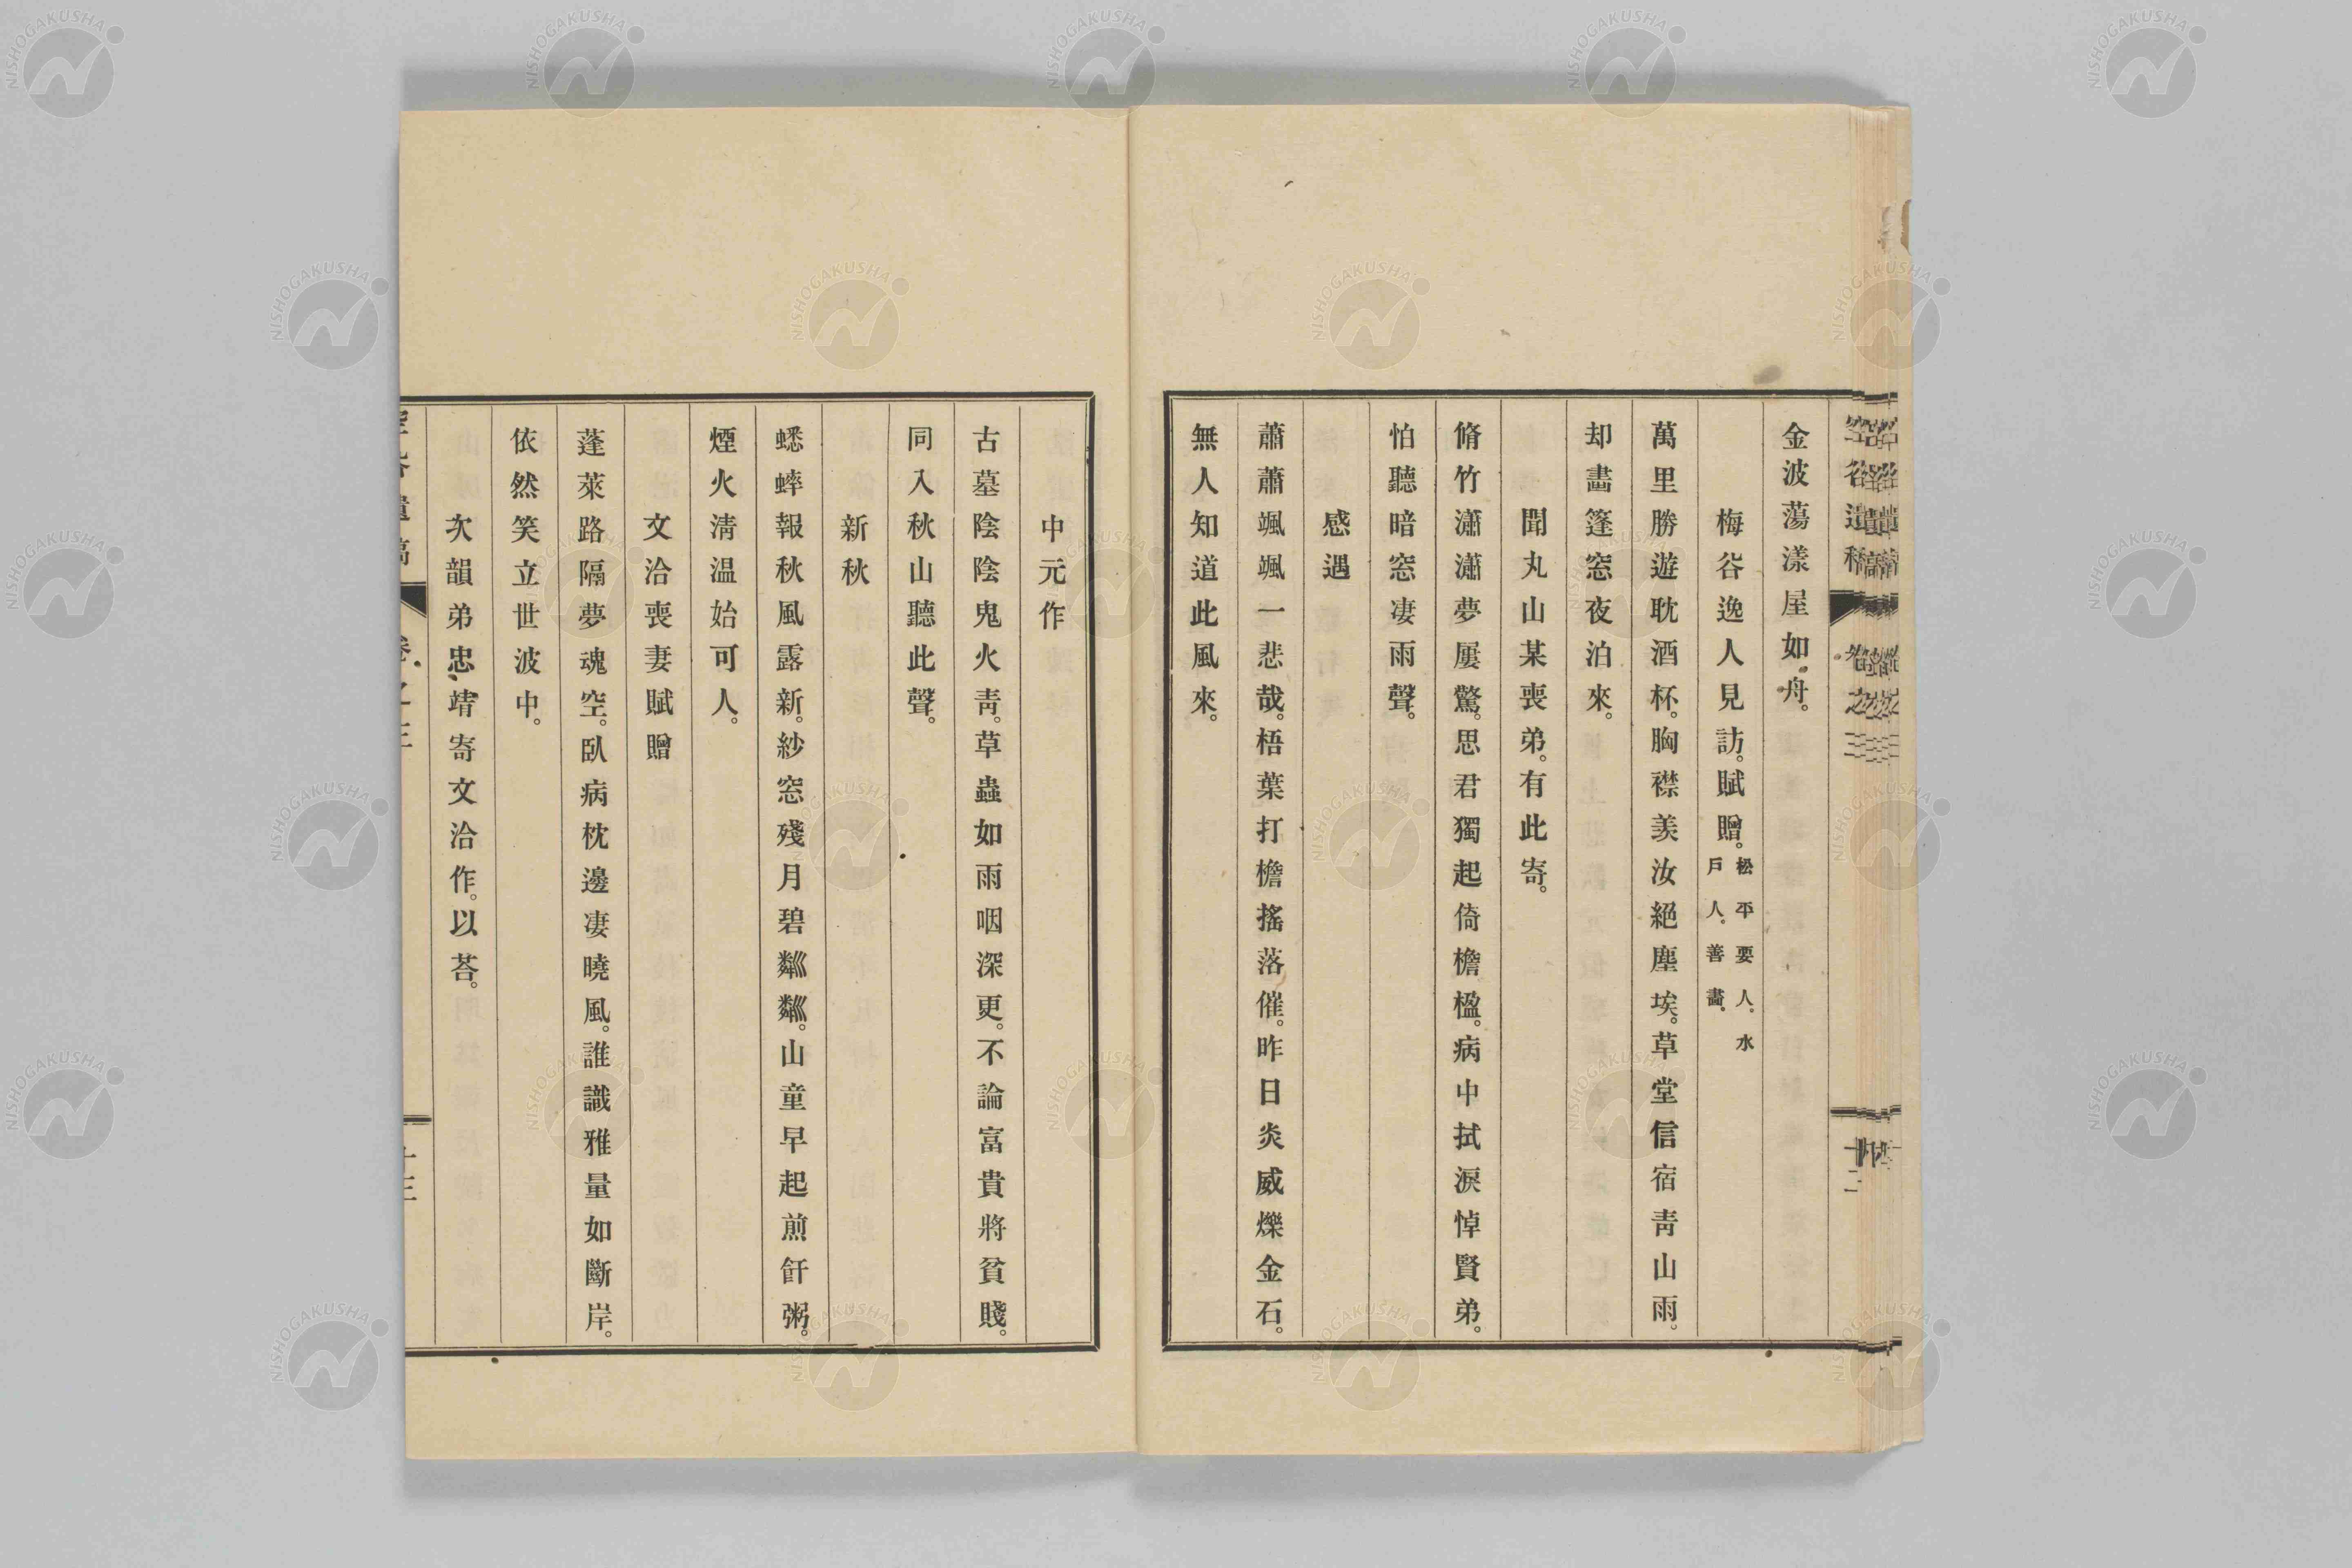 空谷遺稿 卷之三 十二
金波蕩漾屋如舟。
梅谷逸人見訪。賦贈。松平要人。水戶人。善畵。
萬里勝遊耽酒杯。胸襟羨汝絕塵埃。草堂信宿靑山雨。
却畵篷窓夜泊來。
聞丸山某喪弟。有此寄。
脩竹瀟瀟夢屢驚。思君獨起倚檐楹。病中拭淚悼賢弟。
怕聽暗窓凄雨聲。
感遇
蕭蕭颯颯一悲哉。梧葉打檐搖落催。昨日炎威爍金石。
無人知道此風來。
中元作
古墓陰陰鬼火靑。草蟲如雨咽深更。不論富貴將貧賤。
同入秋山聽此聲。
新秋
蟋蟀報秋風露新。紗窓殘月碧粼粼。山童早起煎飦粥。
煙火淸温始可人。
文洽喪妻賦贈
蓬萊路隔夢魂空。臥病枕邊凄曉風。誰識雅量如斷岸。
依然笑立世波中。
次韻弟忠靖寄文洽作。以荅。
遺稿 卷之三
NISHOGAKUSHA